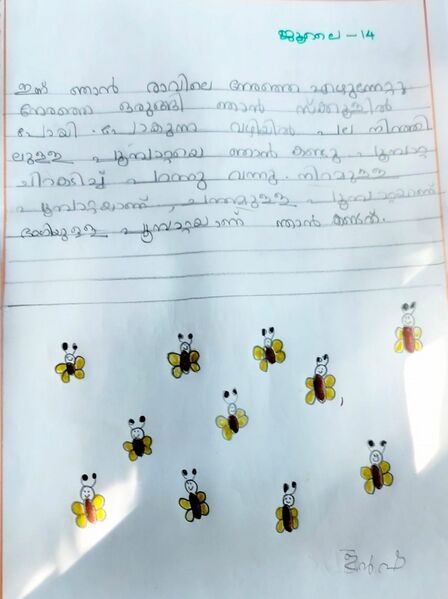 ജൂലൈ - 14
ഇന്ന് ഞാൻ രാവിലെ നേരത്തെ എഴുന്നേറ്റു
നേരത്തെ ഒരുങ്ങി ഞാൻ സ്ക്കൂളിൽ
പോയി. പോകുന്ന വഴിയിൽ പല നിറത്തി
ലുള്ള പൂമ്പാറ്റയെ ഞാൻ കണ്ടു പൂമ്പാറ്റ
ചിറകടിച്ച് പറന്നു വന്നു. നിറമുള്ള
പൂമ്പാറ്റയാണ്, ചന്തമുള്ള പൂമ്പാറ്റയാണ്
ഭംഗിയുള്ള പൂമ്പാറ്റയാണ് ഞാൻ കണ്ടത്.